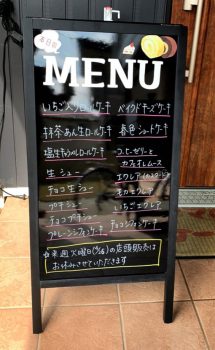 本日の
MENU
いちご入りロールケーキ
抹茶あん生ロールケーキ
塩生キャラメルロールケーキ
生シュー
チョコ生シュー
プチシュー
チョコプチシュー
プレーンシフォンケーキ
ベイクドチーズケーキ
春色ショートケーキ
コーヒーゼリーと
カフェオレムース
エクレア
モカエクレア
いちごエクレア
チョコシフォンケーキ
来週火曜日の店頭販売は
お休みさせていただきます